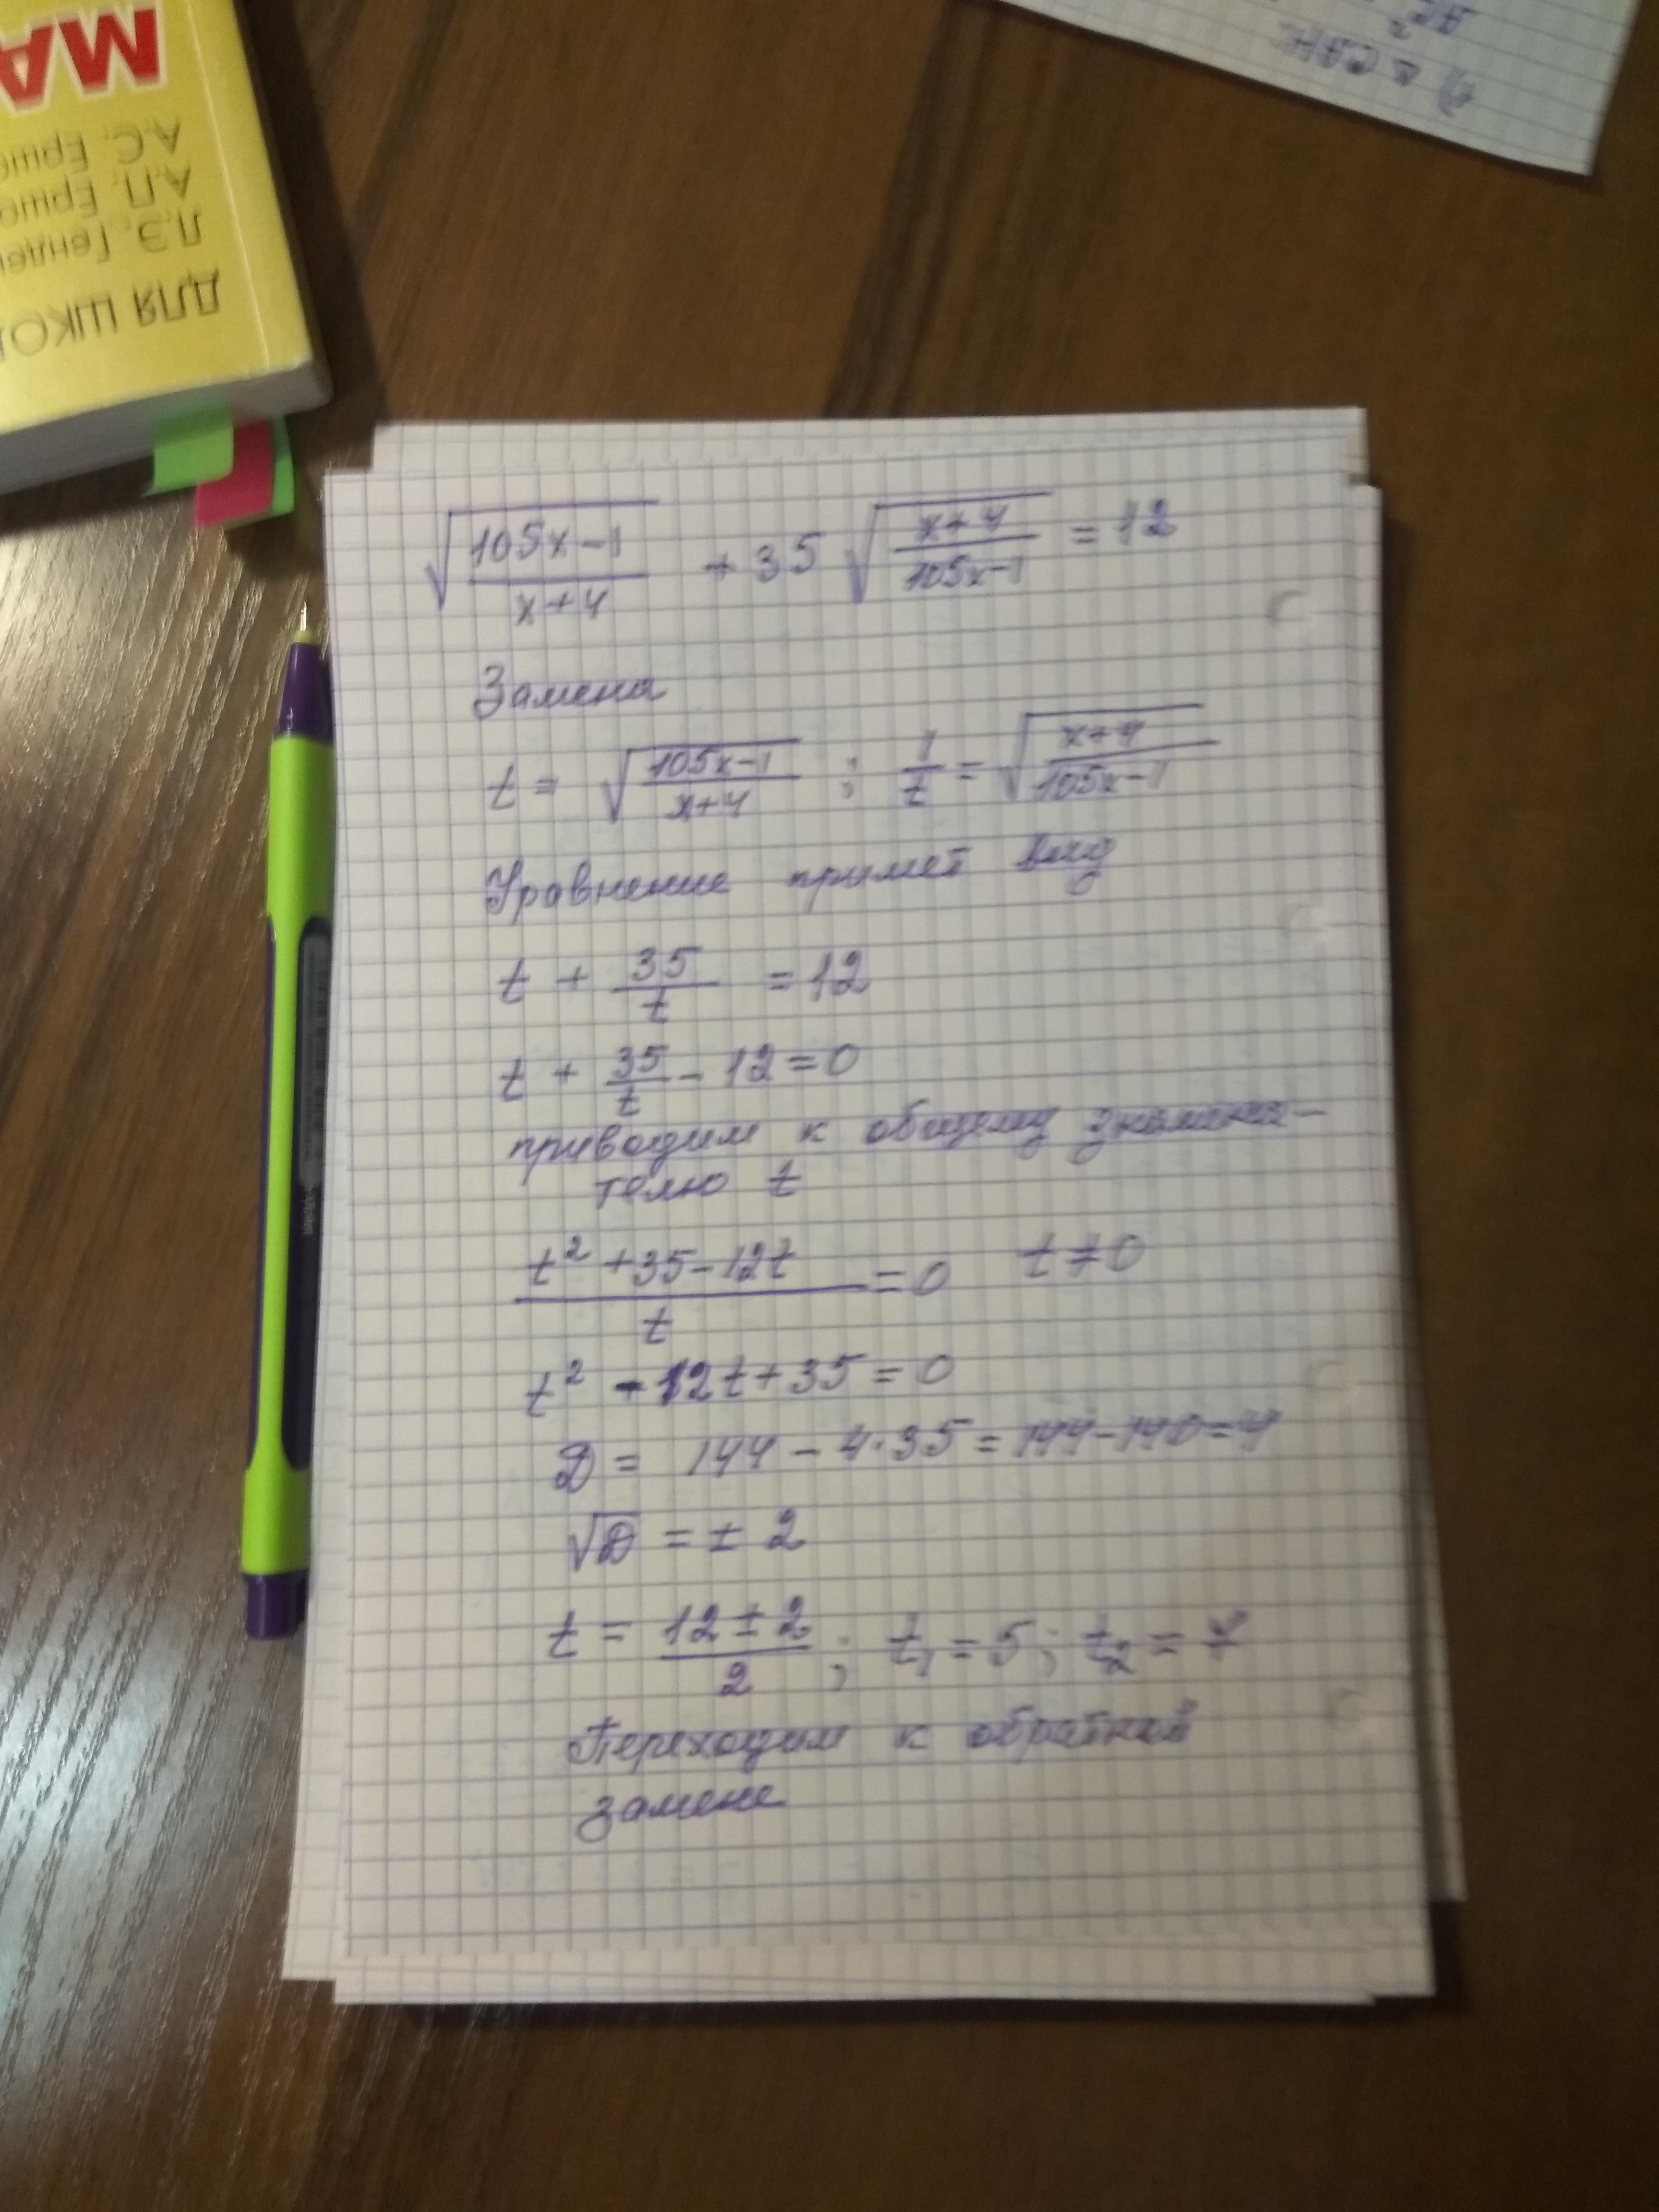 МА
А.С. Ерш
А.П. Ершо
Л.Э. Генден
ДЛЯ ШКОЛ
1) △ САН:
√((105x-1)/(x+4)) + 35 √((x+4)/(105x-1)) = 12
Замена
t = √((105x-1)/(x+4)) ; 1/t = √((x+4)/(105x-1))
Уравнение примет вид
t + 35/t = 12
t + 35/t - 12 = 0
приводим к общему знамена-
телю t
(t² + 35 - 12t)/t = 0 t ≠ 0
t² - 12t + 35 = 0
D = 144 - 4·35 = 144 - 140 = 4
√D = ± 2
t = (12 ± 2)/2 ; t₁ = 5 ; t₂ = 7
Переходим к обратной
замене